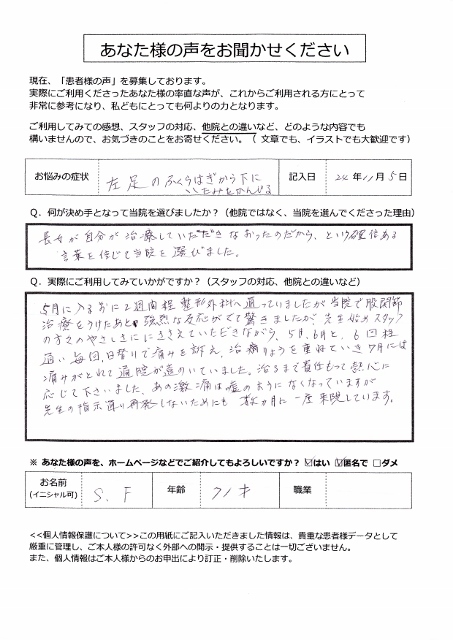 あなた様の声をお聞かせください
現在、「患者様の声」を募集しております。
実際にご利用くださったあなた様の率直な声が、これからご利用される方にとって
非常に参考になり、私どもにとっても何よりの力となります。
ご利用してみての感想、スタッフの対応、他院との違いなど、どのような内容でも
構いませんので、お気づきのことをお寄せください。（ 文章でも、イラストでも大歓迎です）
お悩みの症状 左足のふくらはぎから下に
いたみをかんじる
記入日 24年11月5日
Q．何が決め手となって当院を選びましたか？（他院ではなく、当院を選んでくださった理由）
長女が自分が治療していただき なおったのだから、という確信ある
言葉を信じて当院を選びました。
Q．実際にご利用してみていかがですか？（スタッフの対応、他院との違いなど）
5月に入るまでに2週間程整形外科へ通っていましたが当院で股関節
治療をうけたあと 強烈な反応がでて驚きましたが 先生始めスタッフ
の方々のやさしさにささえていただきながら、5月、6月と、6回程
通い 毎回、日替りで痛みを訴え、治療りょうを重ねていき 7月には
痛みがとれて通院が遠のいていました。治るまで責任もって熱心に
応じて下さいました。あの激痛は嘘のようになくなっていますが
先生の指示通り再発しないためにも 数か月に一度来院しています。
※ あなた様の声を、ホームページなどでご紹介してもよろしいですか？ ☑はい ☑匿名で □ダメ
お名前
(イニシャル可)
S. F
年齢 71才
職業
<<個人情報保護について>>この用紙にご記入いただきました情報は、貴重な患者様データとして
厳重に管理し、ご本人様の許可なく外部への開示・提供することは一切ございません。
また、個人情報はご本人様からのお申出により訂正・削除いたします。